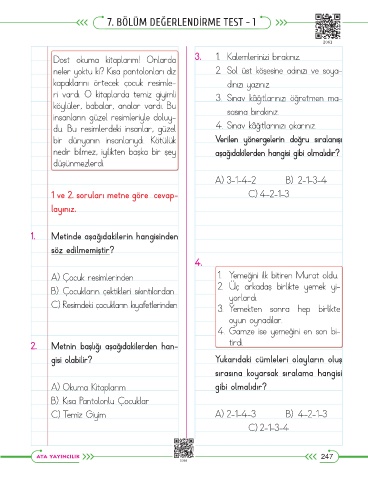 7. BÖLÜM DEĞERLENDİRME TEST - 1
Dost okuma kitaplarım! Onlarda
neler yoktu ki? Kısa pantolonları diz
kapaklarını örtecek çocuk resimle-
ri vardı. O kitaplarda temiz giyimli
köylüler, babalar, analar vardı. Bu
insanların güzel resimleriyle doluy-
du. Bu resimlerdeki insanlar, güzel
bir dünyanın insanlarıydı. Kötülük
nedir bilmez, iyilikten başka bir şey
düşünmezlerdi.
1 ve 2. soruları metne göre cevap-
layınız.
1. Metinde aşağıdakilerin hangisinden
söz edilmemiştir?
A) Çocuk resimlerinden
B) Çocukların çektikleri sıkıntılardan
C) Resimdeki çocukların kıyafetlerinden
2. Metnin başlığı aşağıdakilerden han-
gisi olabilir?
A) Okuma Kitaplarım
B) Kısa Pantolonlu Çocuklar
C) Temiz Giyim
3. 1. Kalemlerinizi bırakınız.
2. Sol üst köşesine adınızı ve soya-
dınızı yazınız.
3. Sınav kâğıtlarınızı öğretmen ma-
sasına bırakınız.
4. Sınav kâğıtlarınızı çıkarınız.
Verilen yönergelerin doğru sıralanışı
aşağıdakilerden hangisi gibi olmalıdır?
A) 3-1-4-2 B) 2-1-3-4
C) 4-2-1-3
4.
1. Yemeğini ilk bitiren Murat oldu.
2. Üç arkadaş birlikte yemek yi-
yorlardı.
3. Yemekten sonra hep birlikte
oyun oynadılar.
4. Gamze ise yemeğini en son bi-
tirdi.
Yukarıdaki cümleleri olayların oluş
sırasına koyarsak sıralama hangisi
gibi olmalıdır?
A) 2-1-4-3 B) 4-2-1-3
C) 2-1-3-4
ATA YAYINCILIK
247